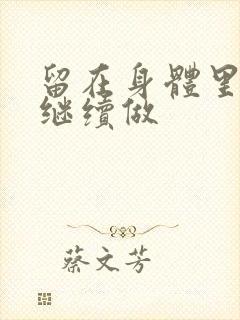 留在身體里
继續做
蔡文芳